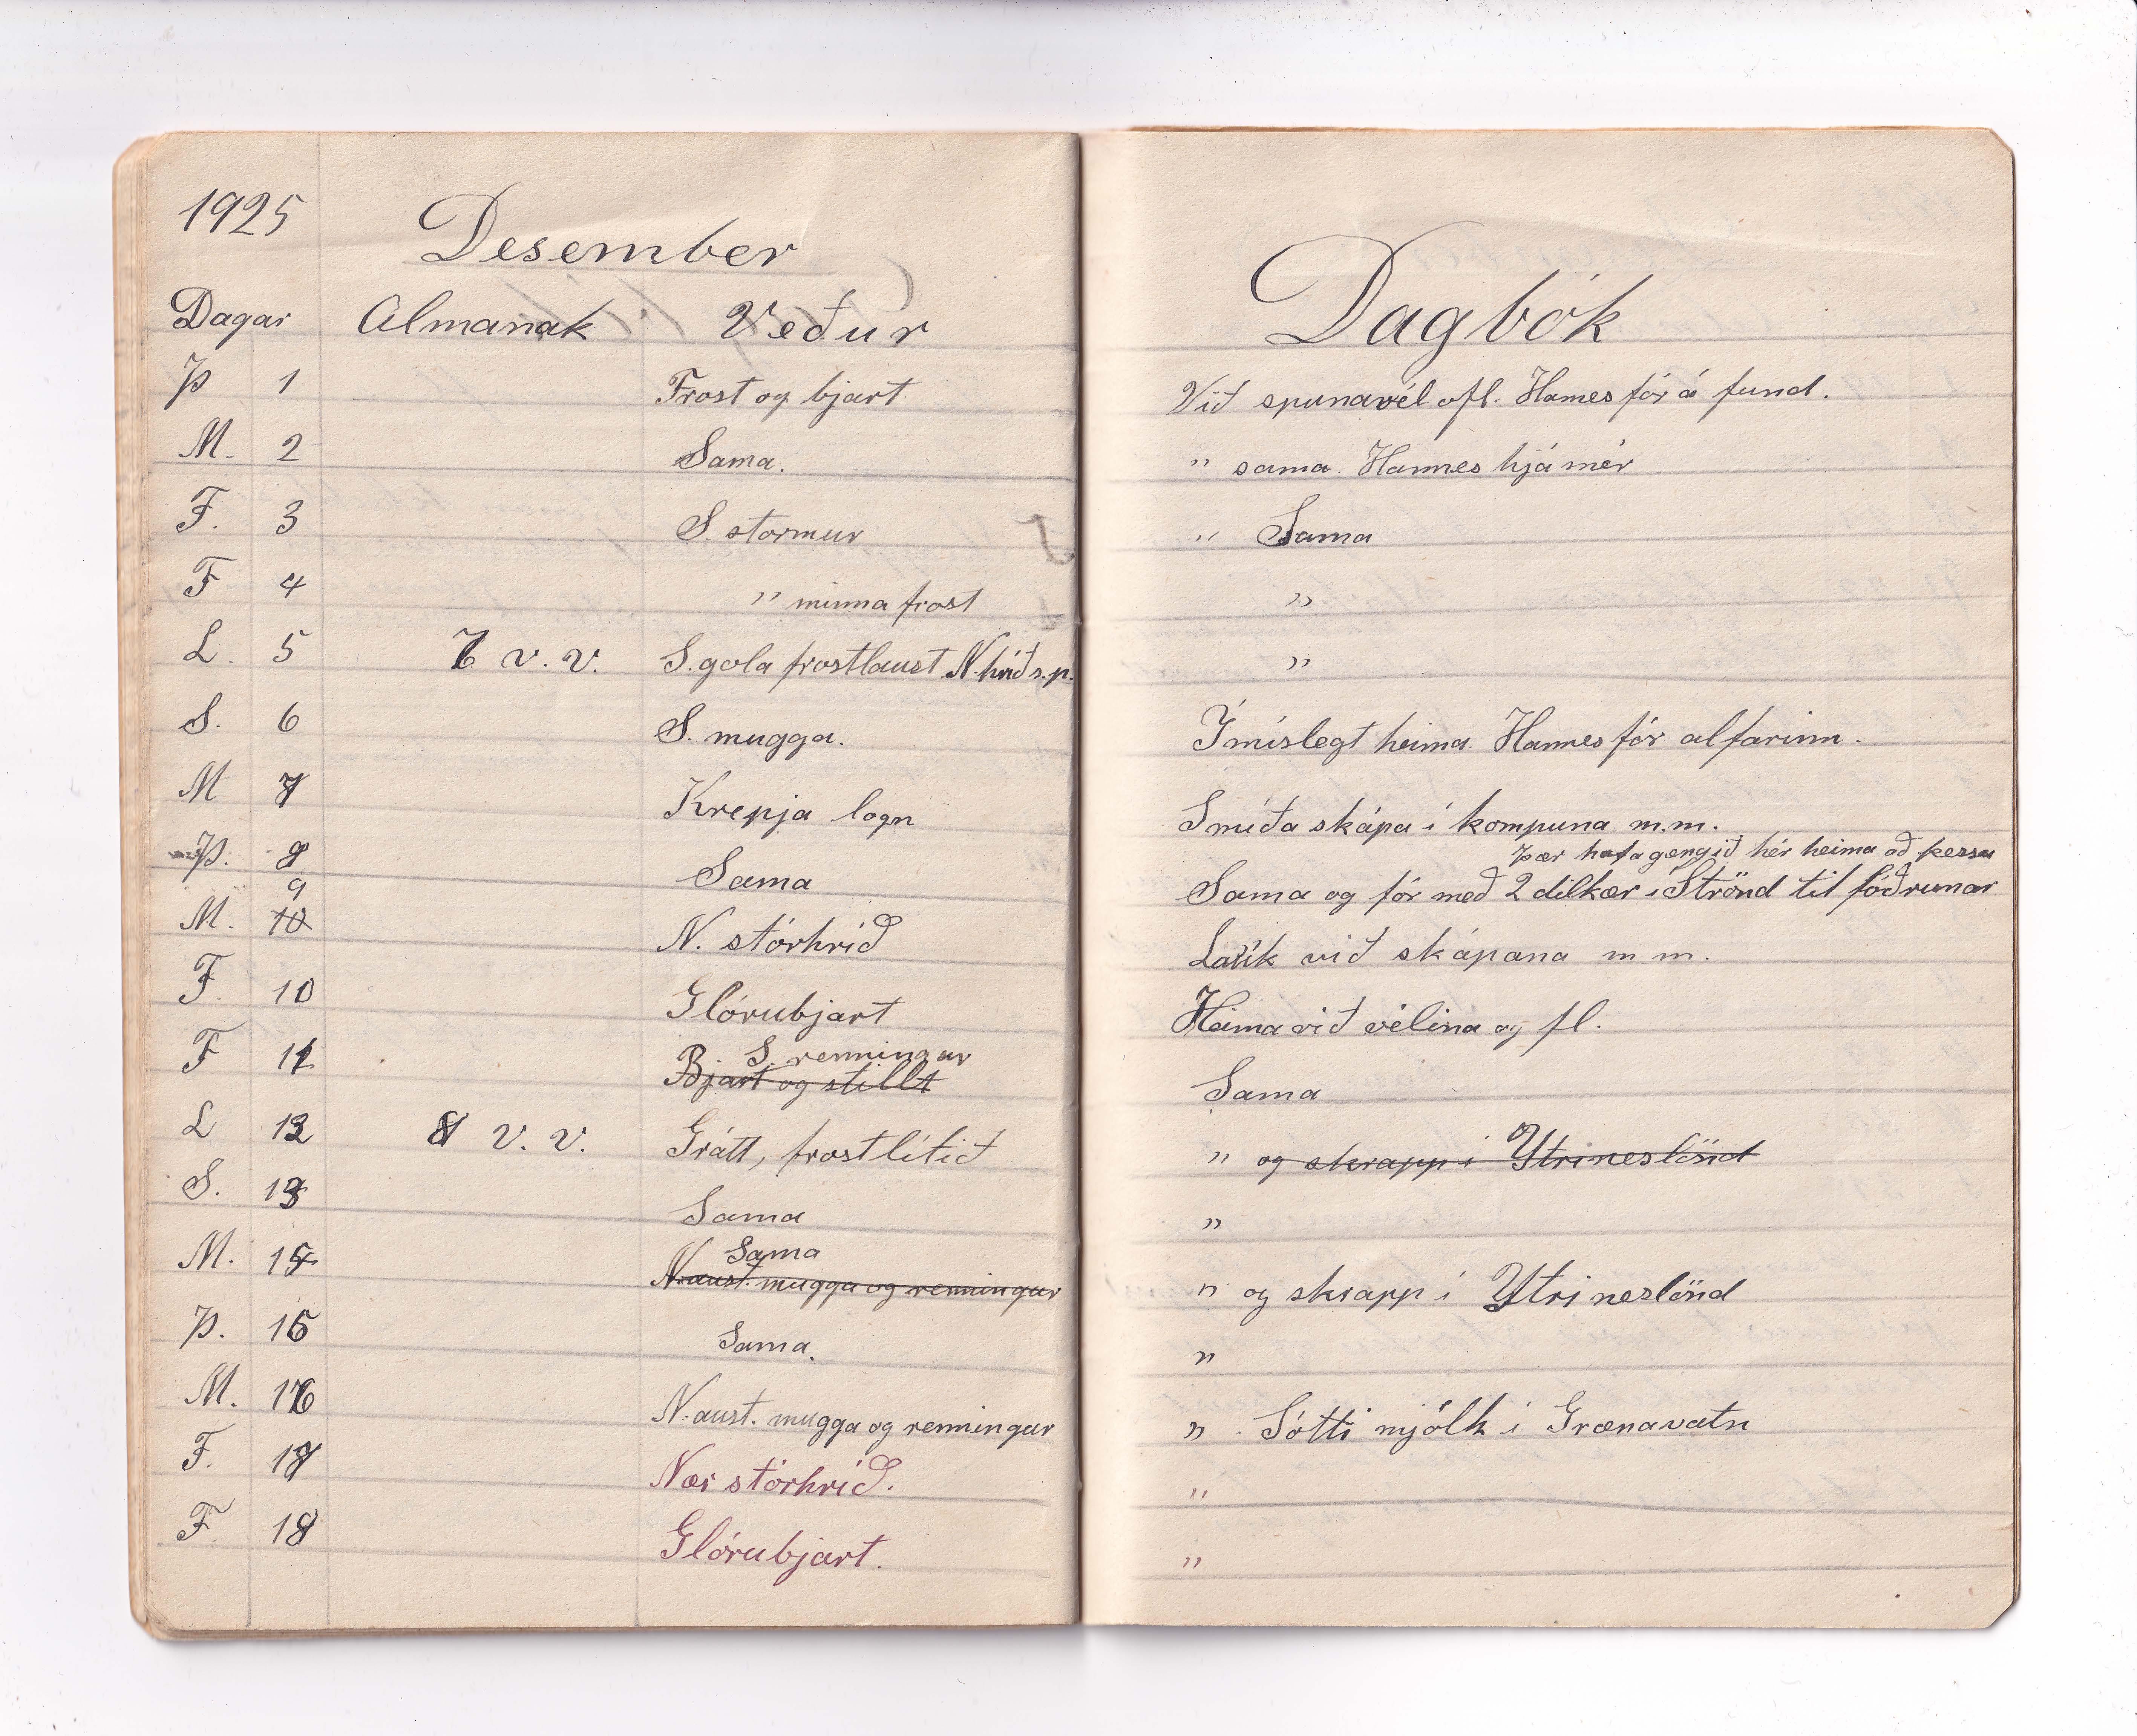 1925
Desember
Dagar Almanak Veður
Þ 1 Frost og bjart
M. 2 Sama.
F. 3 S. stormur
F 4 " minna frost
L. 5 7 v. v. S. gola frostlaust N. hríð s.p.
S. 6 S. mugga.
M 7 Krepja logn
Þ. 8 Sama
9
M. 10 N. stórhríð
F. 10 Glórubjart
S. renningur
F 11 Bjart og stillt
L 12 8 v. v. Grátt, frostlítið
S. 13 Sama
Sama
M. 14 N. aust. mugga og renningur
Þ. 15 Sama.
M. 16 N. aust. mugga og renningur
F. 17 Nær stórhríð.
F. 18 Glórubjart.
Dagbók
Við spunavél ofl. Hannes fór á fund.
" sama. Hannes hjá mér
" Sama
"
"
Ímislegt heima. Hannes fór alfarinn.
Smíða skápa í kompuna m.m.
Þær hafa gengið hér heima að þessu
Sama og fór með 2 dilkær í Strönd til fóðrunar
við skápana m m.
Heima við vélina og fl.
Sama
" og skrapp í Ytrineslönd
"
" og skrapp í Ytrineslönd
"
" Sótti mjólk í Grænavatn
"
"